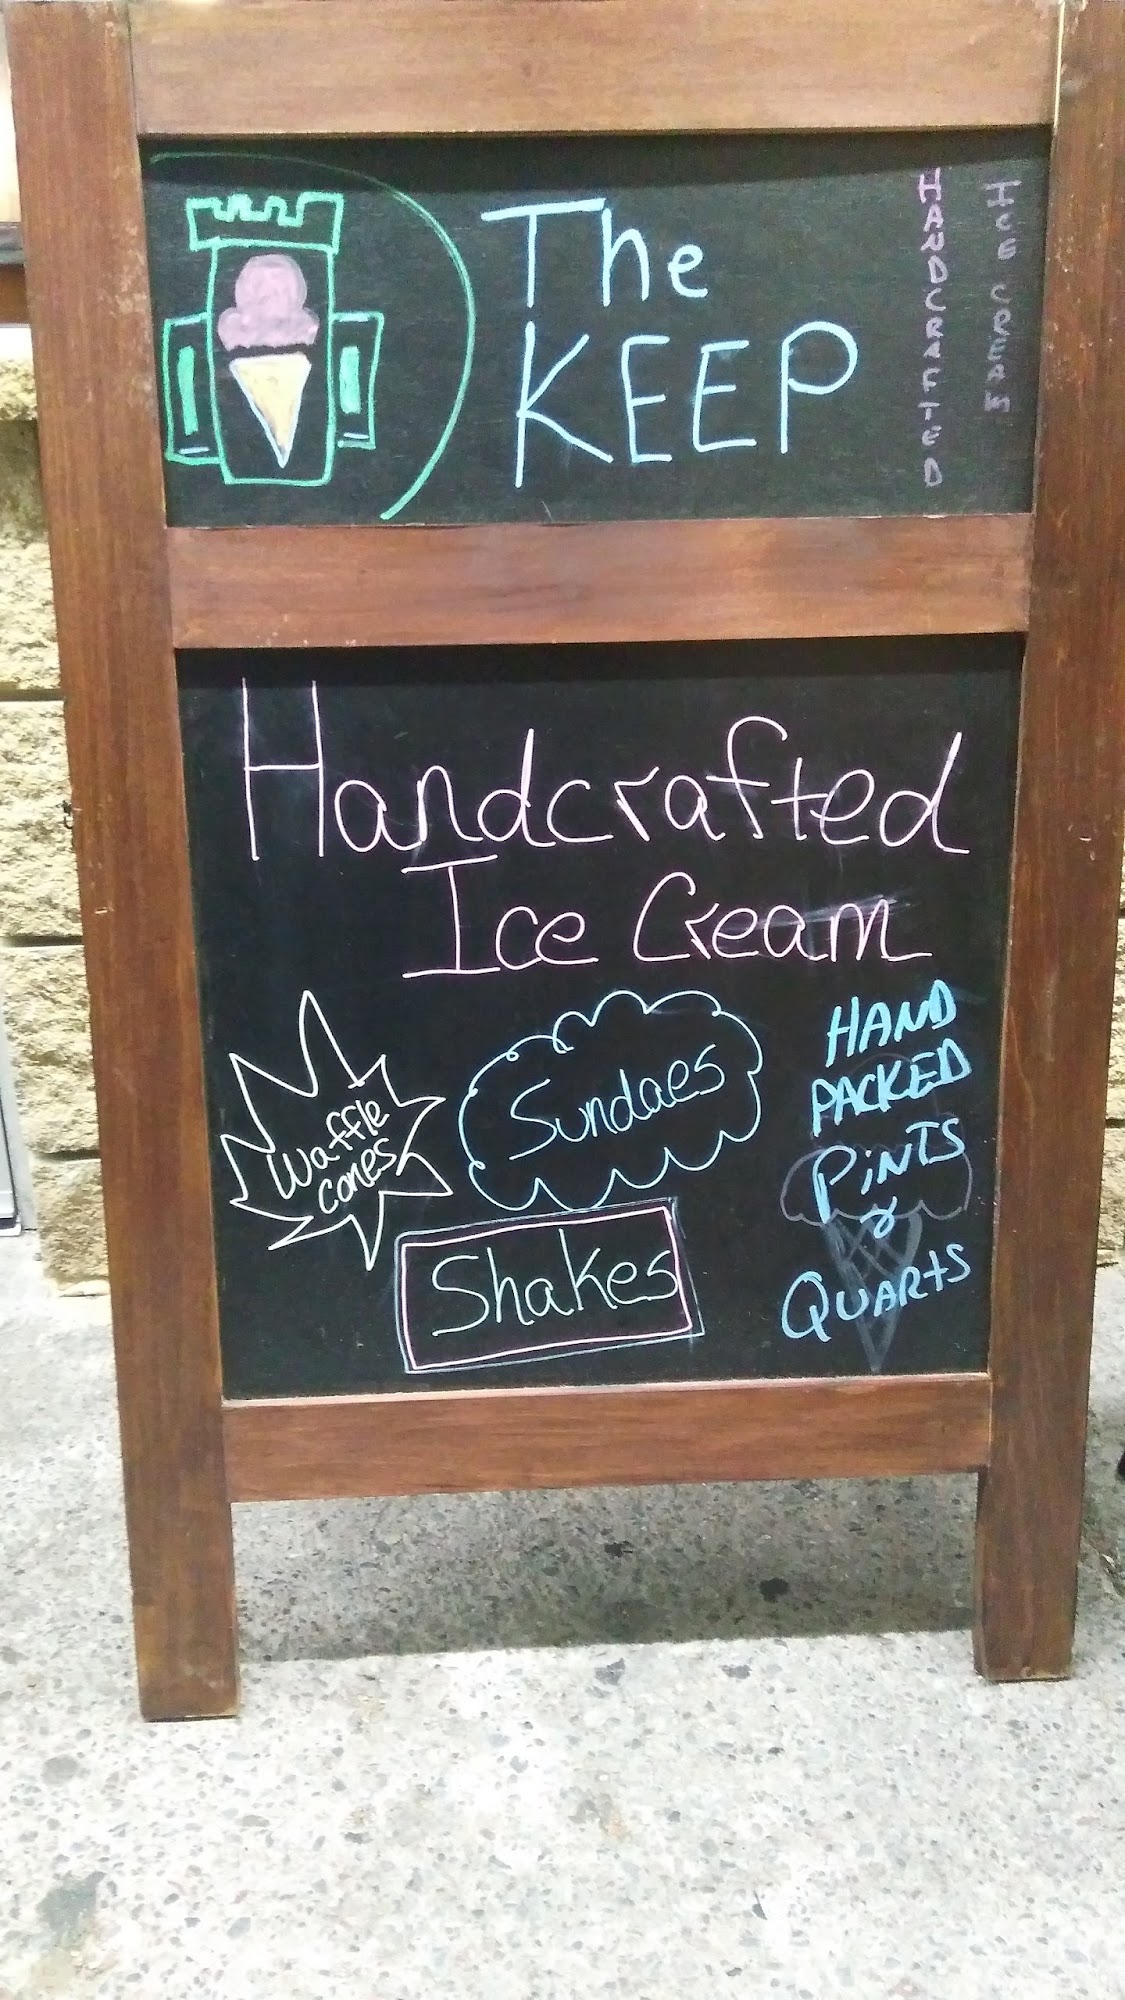 The
KEEP
HANDCRAFTED
ICE CREAM
Handcrafted
Ice Cream
Waffle
Cones
Sundaes
Shakes
HAND
PACKED
PiNTS
&
QUARtS